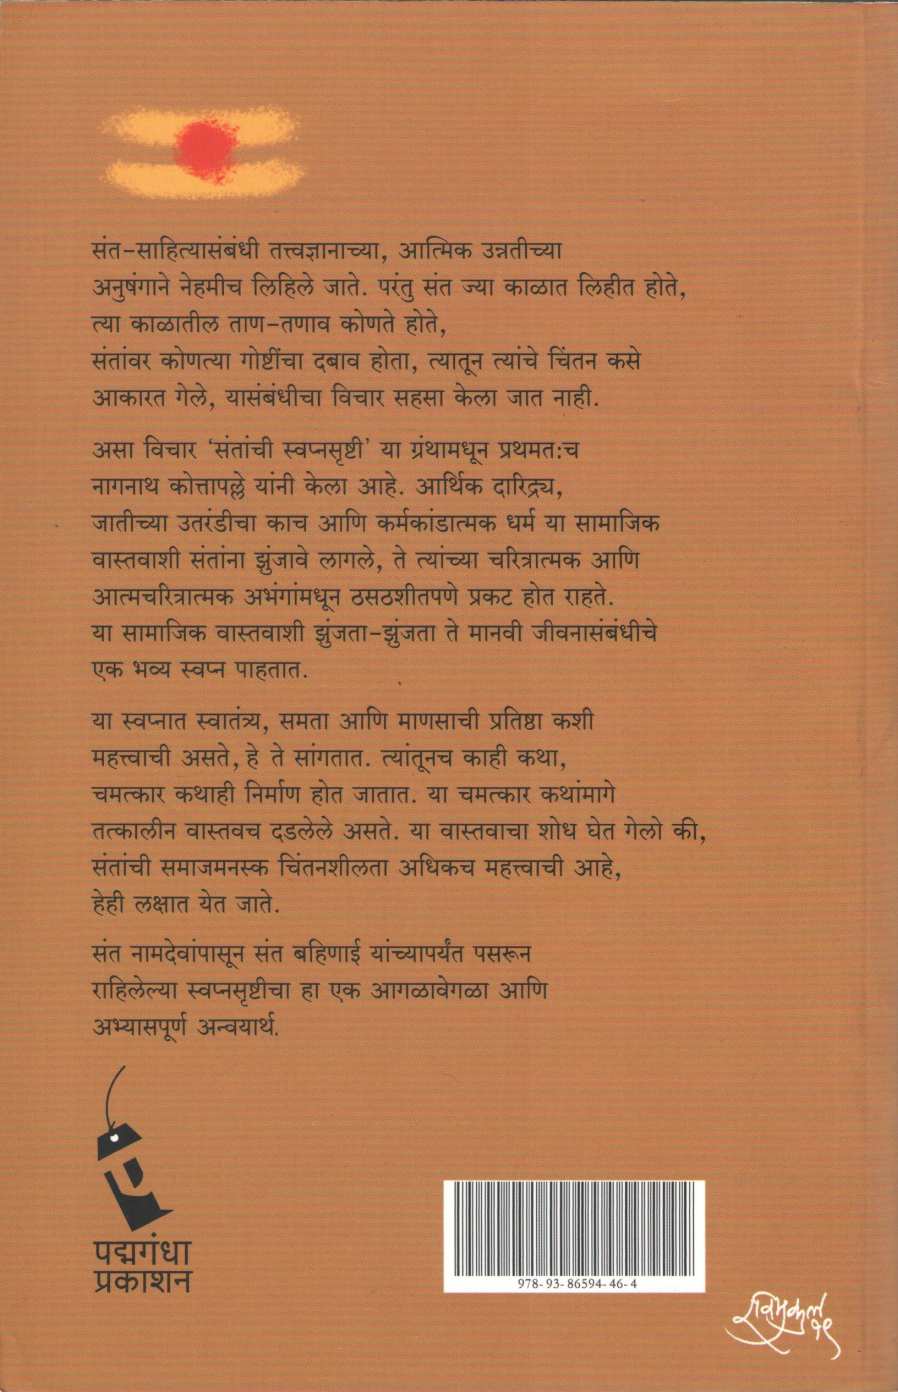 संत-साहित्यासंबंधी तत्त्वज्ञानाच्या, आत्मिक उन्नतीच्या
अनुषंगाने नेहमीच लिहिले जाते. परंतु संत ज्या काळात लिहीत होते,
त्या काळातील ताण-तणाव कोणते होते,
संतांवर कोणत्या गोष्टींचा दबाव होता, त्यातून त्यांचे चिंतन कसे
आकारत गेले, यासंबंधीचा विचार सहसा केला जात नाही.
असा विचार ‘संतांची स्वप्नसृष्टी’ या ग्रंथामधून प्रथमत:च
नागनाथ कोत्तापल्ले यांनी केला आहे. आर्थिक दारिद्र्य,
जातीच्या उतरंडीचा काच आणि कर्मकांडात्मक धर्म या सामाजिक
वास्तवाशी संतांना झुंजावे लागले, ते त्यांच्या चरित्रात्मक आणि
आत्मचरित्रात्मक अभंगांमधून ठसठशीतपणे प्रकट होत राहते.
या सामाजिक वास्तवाशी झुंजता-झुंजता ते मानवी जीवनासंबंधीचे
एक भव्य स्वप्न पाहतात.
या स्वप्नात स्वातंत्र्य, समता आणि माणसाची प्रतिष्ठा कशी
महत्त्वाची असते, हे ते सांगतात. त्यांतूनच काही कथा,
चमत्कार कथाही निर्माण होत जातात. या चमत्कार कथांमागे
तत्कालीन वास्तवच दडलेले असते. या वास्तवाचा शोध घेत गेलो की,
संतांची समाजमनस्क चिंतनशीलता अधिकच महत्त्वाची आहे,
हेही लक्षात येत जाते.
संत नामदेवांपासून संत बहिणाई यांच्यापर्यंत पसरून
राहिलेल्या स्वप्नसृष्टीचा हा एक आगळावेगळा आणि
अभ्यासपूर्ण अन्वयार्थ.
पद्मगंधा
प्रकाशन
978-93-86594-46-4
रविमुकुल
१९